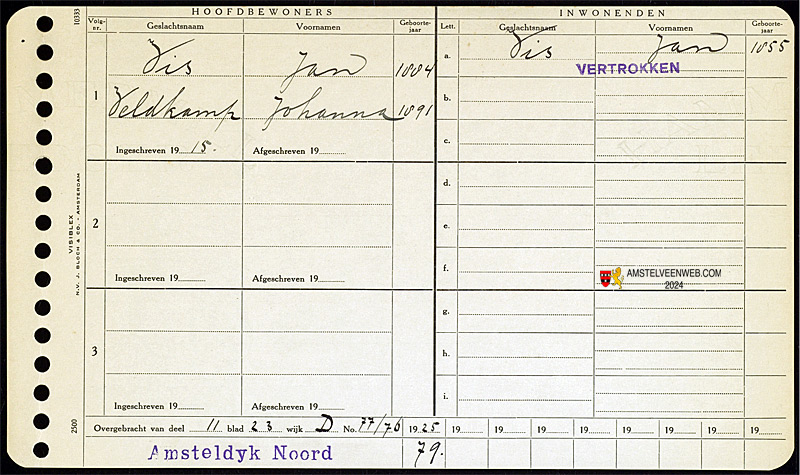 HOOFDBEWONERS
INWONENDEN
10333
Volg-nr.
Geslachtsnaam
Voornamen
Geboorte-jaar
Lett.
Geslachtsnaam
Voornamen
Geboorte-jaar
1
Vis
Jan
1884
a.
Vis
Jan
1855
VERTROKKEN
Veldkamp
Johanna
1891
b.
c.
Ingeschreven 19 15.
Afgeschreven 19
2
d.
e.
f.
Ingeschreven 19
Afgeschreven 19
AMSTELVEENWEB.COM
2024
3
g.
h.
i.
Ingeschreven 19
Afgeschreven 19
VISIBLEX
N.V. J. BLOCH & CO. - AMSTERDAM
2500
Overgebracht van deel 11 blad 23 wijk D No. 77/76 1925 19 19 19 19 19 19 19 19
Amsteldyk Noord
79.